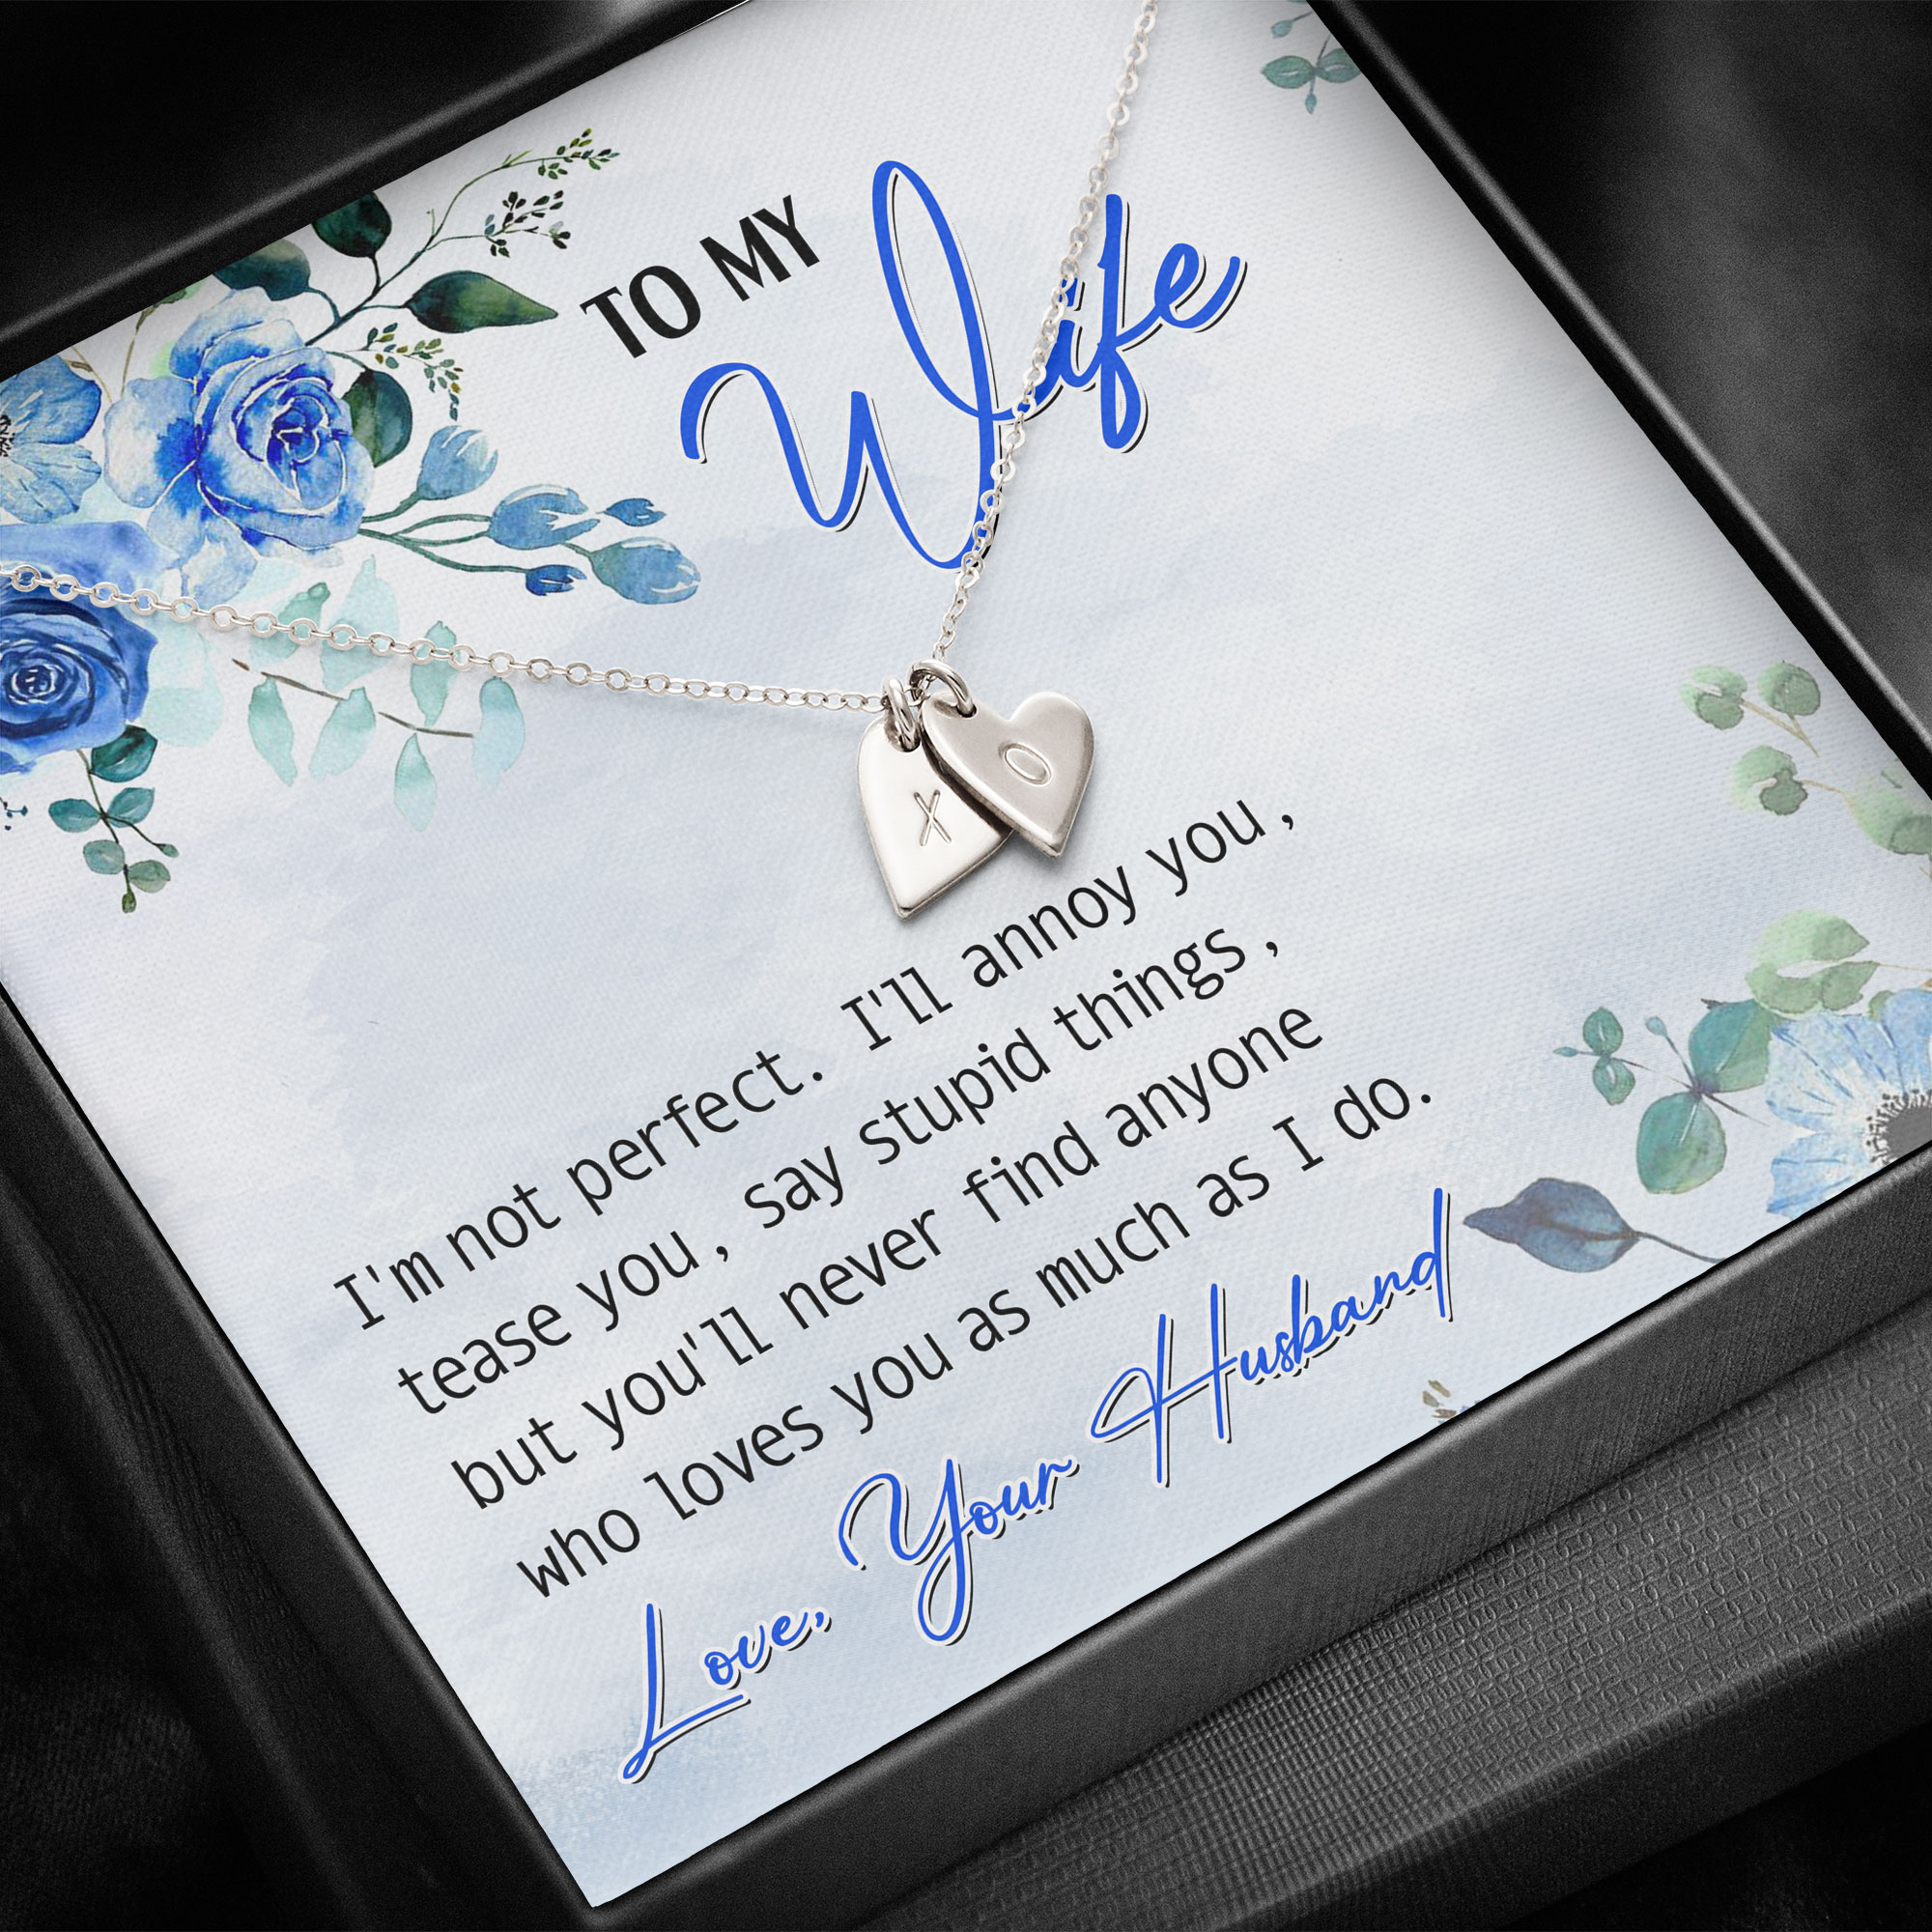 TO MY
Wife
X O
I'm not perfect. I'll annoy you,
tease you, say stupid things,
but you'll never find anyone
who loves you as much as I do.
Love, Your Husband